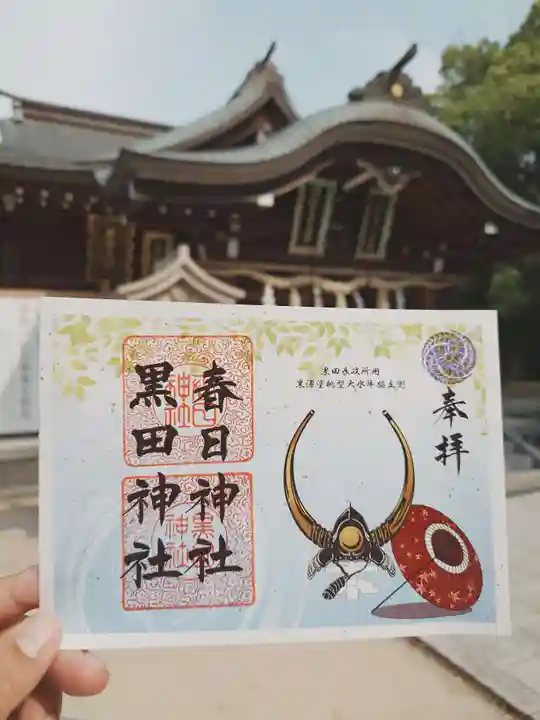 奉拝
黒田長政所用
黒漆塗桃型大水牛脇立兜
春日神社
黒田神社